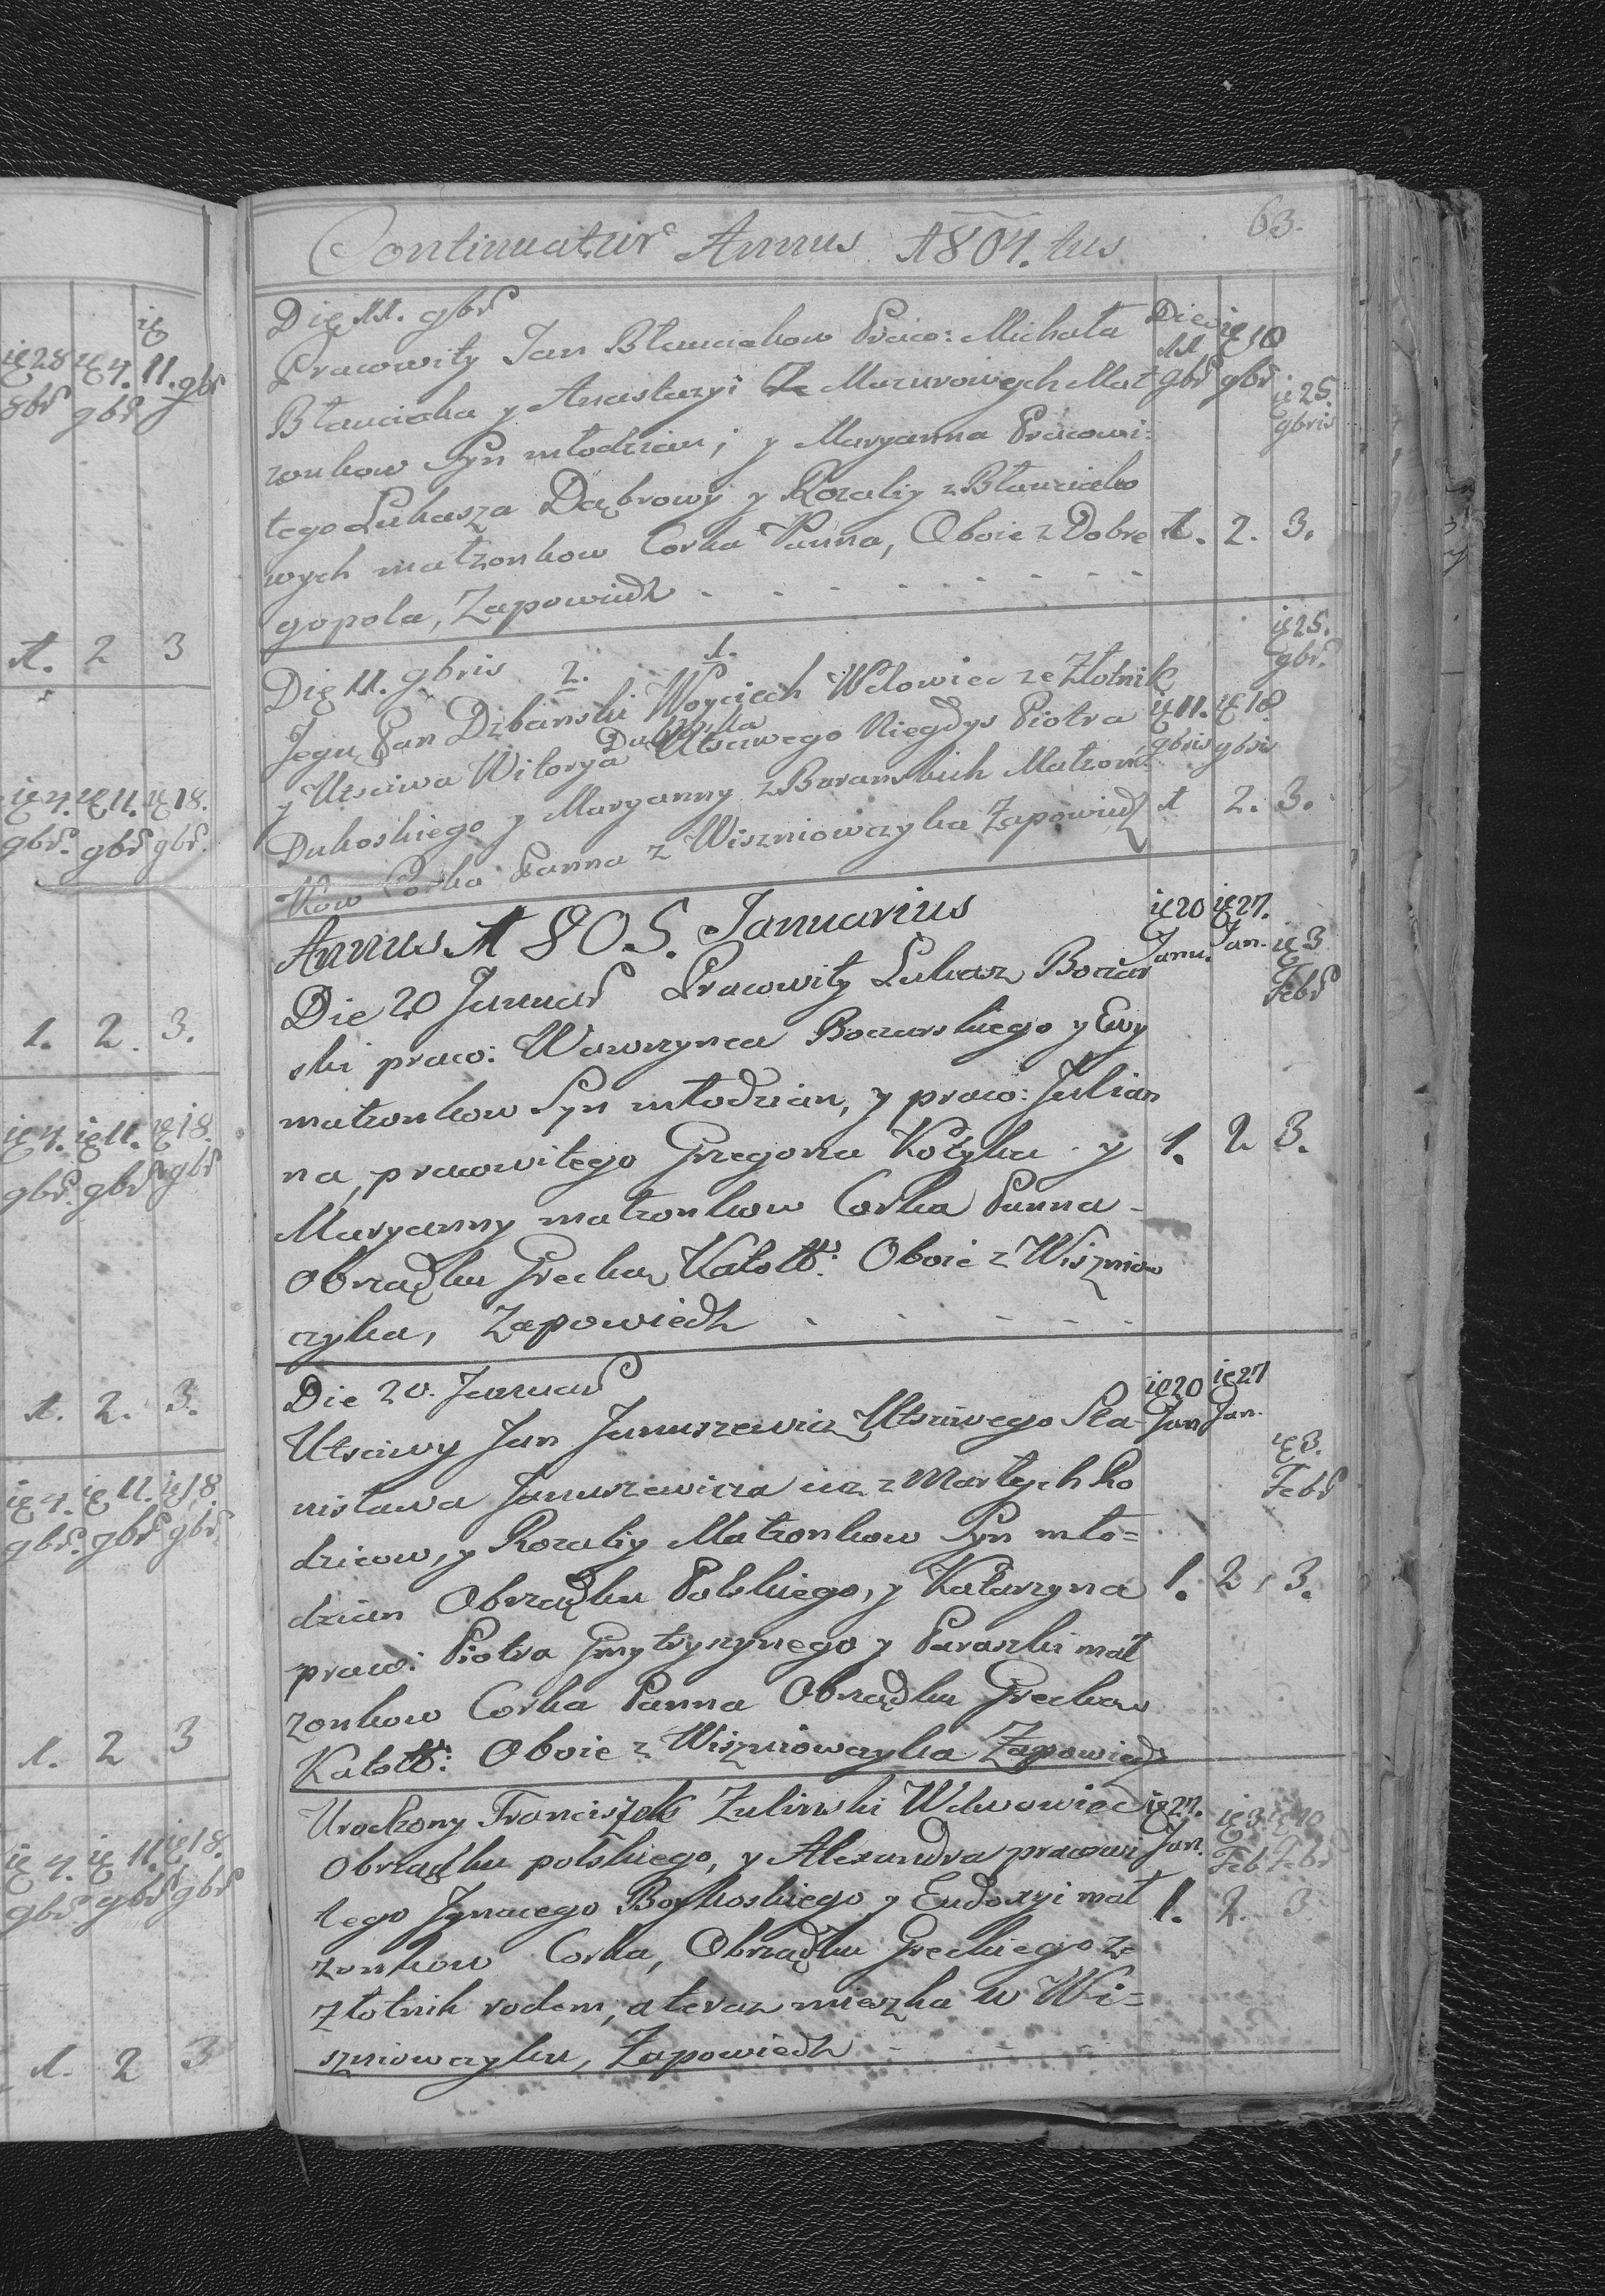 63.
Continuatur Annus 1804.tus
Dię 11. 9br̃
Pracowity Jan Błauciakow Praco: Michała
Błauciaka y Anastazyi Ze Mazurowych Mał
zonkow Syn młodzian; y Maryanna Pracowi:
tego Łukasza Dąbrowy y Rozalij z Błauciako
wych małzonkow Corka Panna, Oboie z Dobre
gopola, Zapowiedz
Die 11 9br̃
ię 18 9br̃
ię 25. 9bris
1. 2. 3.
Dię 11. 9bris 2. 1.
Jegu Pan Dzbanski Woyciech Wdowiec ze Złotnik
y Utsciwa Witorya Utsciwego Niegdys Piotra
Dukoskiego y Maryanny z Baranskich Małzon
Kow Corka Panna z Wiszniowczyka Zapowiedz
ię 11. 9bris
ię 18 9bris
ię 25. 9br̃.
1 2. 3.
Annus 1805. Januarius
Die 20 Januar̃ Pracowity Łukasz Boczar
ski praco: Wawrzynca Boczarskiego y Ewy
małzonkow Syn młodzian, y praco: Julian
na, pracowitego Grzegorza Kozyka y
Maryanny małzonkow Corka Panna
Obrządku Grecka Katoll: Oboie z Wiszniow
czyka, Zapowiedz
ię 20 Janu.
ię 27. Jan.
ię 3 Febr̃
1. 2 3.
Die 20. Januar̃
Utsciwy Jan Januszewicz Utsciwego Sta
nisława Januszewicza iuz z Martych Ro
dzicow, y Rozalij Małzonkow Syn mło=
dzian Obrządku Polskiego, y Katarzyna
praco: Piotra Gmytryszynego y Paraszki mał
zonkow Corka Panna Obrządku Greckow
Katoll: Oboie z Wiszniowczyka Zapowiedz
ię 20 Jan
ię 27 Jan.
ię 3. Febr̃
1. 2. 3.
Urodzony Franciszek Zulinski Wdwowiec
Obrządku polskiego, y Alexandra pracowi
tego Jgnacego Boykoskiego y Eudoxyi mał
zonkow Corka, Obrządku Greckiego ze
Złotnik rodem, a teraz mieszka w Wi=
szniowczyku, Zapowiedz
ię 27. Jan.
ię 3 Feb.
ię 10 Febr̃
1. 2. 3
ię 28 8br̃
ię 4. 9br̃
ię 11. 9br̃
1. 2 3
ię 4. 9br̃.
ię 11. 9br̃
ię 18. 9br̃.
1. 2. 3.
ię 4. 9br̃.
ię 11. 9br̃
ię 18. 9br̃
1. 2. 3.
ię 4. 9br̃.
ię 11. 9br̃
ię 18. 9br̃
1. 2 3
ię 4. 9br̃
ię 11. 9br̃
ię 18. 9br̃
1. 2 3